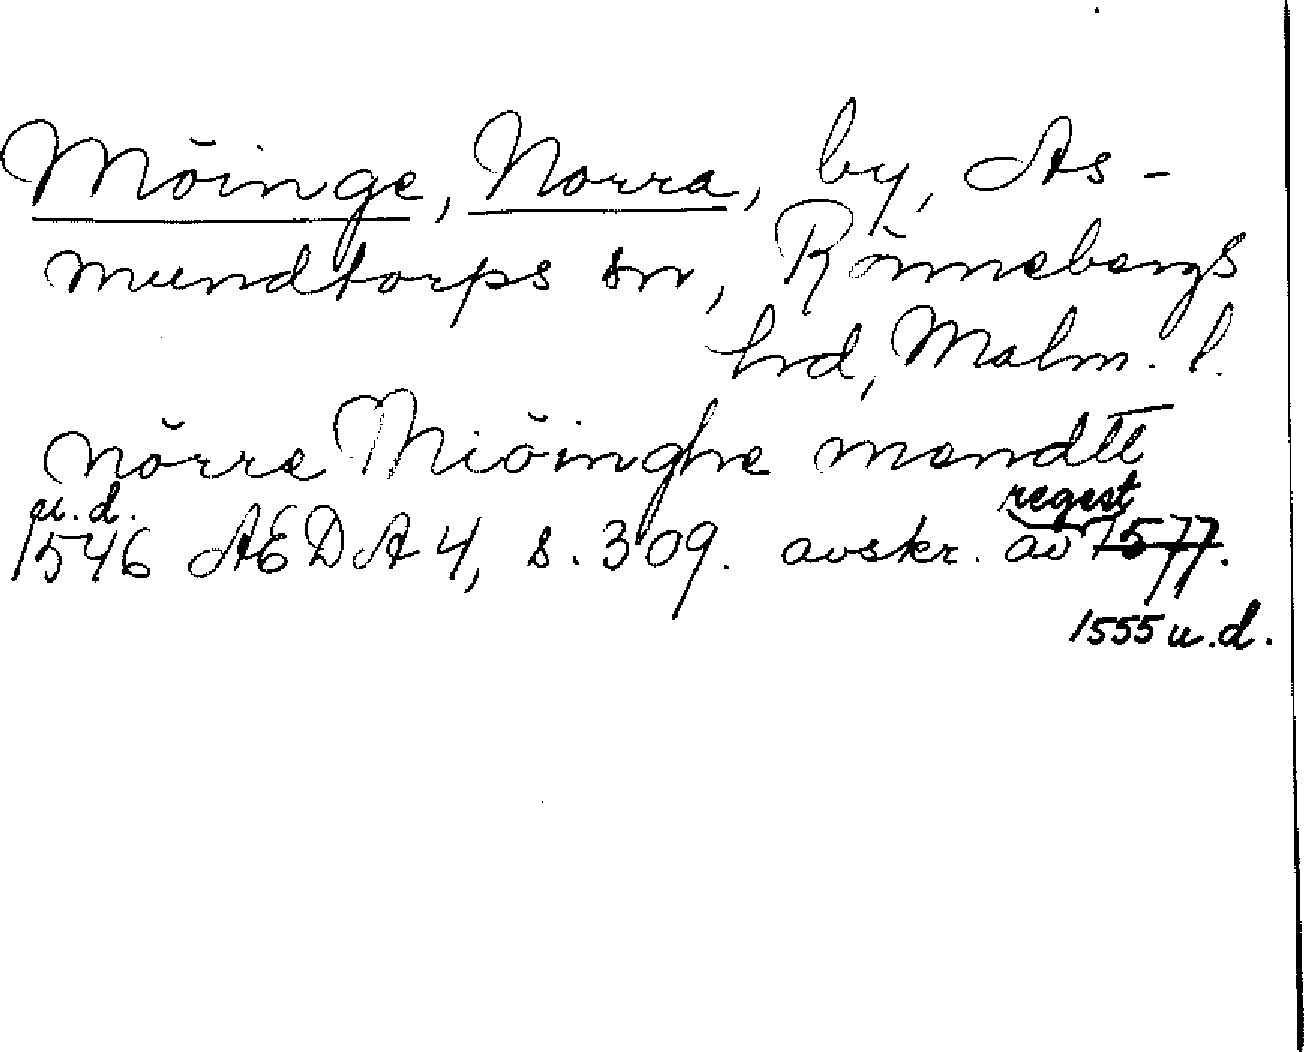 Möinge, Norra, by, As-
mundtorps sn, Rönnebergs
hrd, Malm. l.
nörre Miöinghe mendtt
u.d.
regest
1546 AEDA 4, s. 309. avskr. av 1577.
1555 u.d.